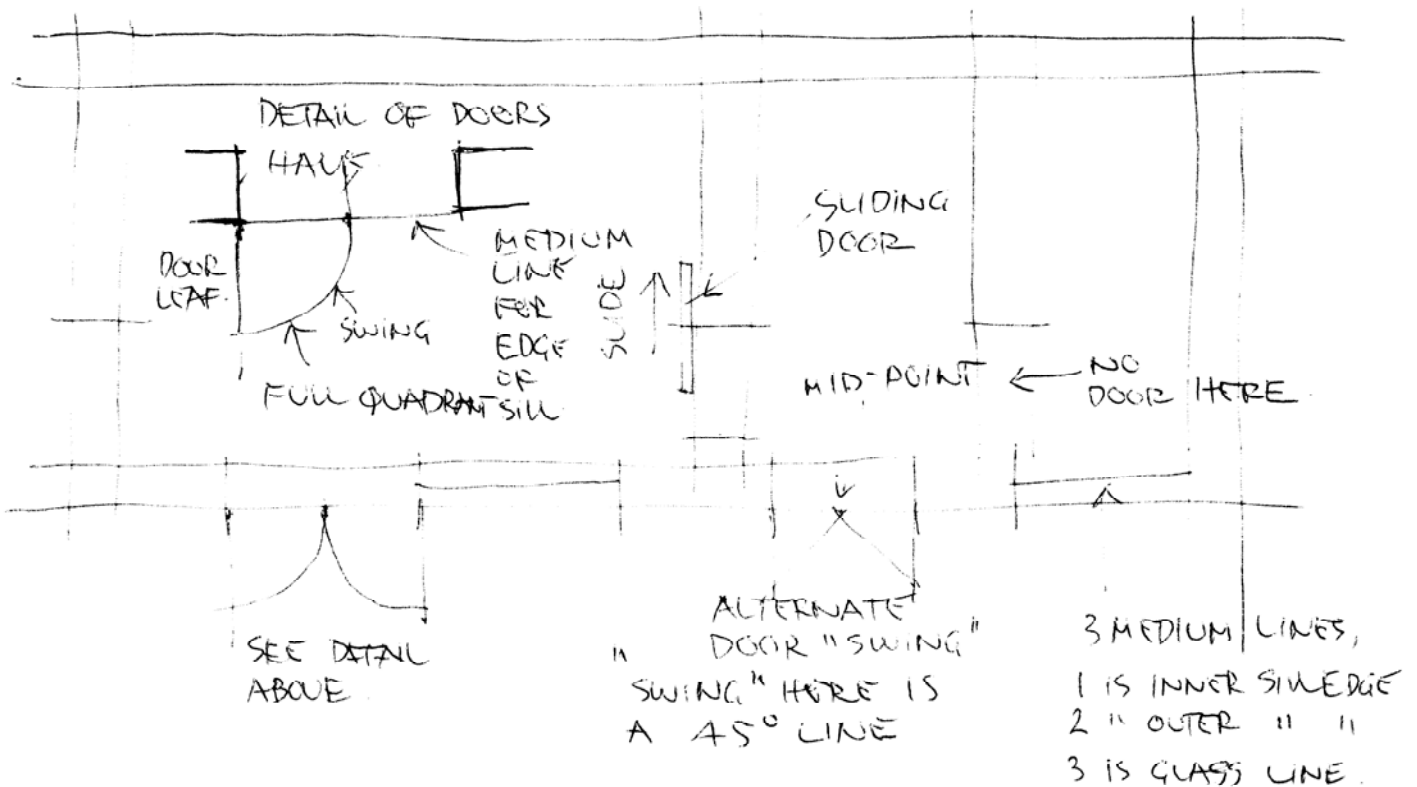 DETAIL OF DOORS
HALVE
DOOR
LEAF.
SWING
FULL QUADRANT
MEDIUM
LINE
FOR
EDGE
OF
SILL
SLIDE
SLIDING
DOOR
MID-POINT
NO
DOOR HERE
SEE DETAIL
ABOVE
ALTERNATE
DOOR "SWING"
"SWING" HERE IS
A 45° LINE
3 MEDIUM LINES,
1 IS INNER SILL EDGE
2 " OUTER " "
3 IS GLASS LINE.